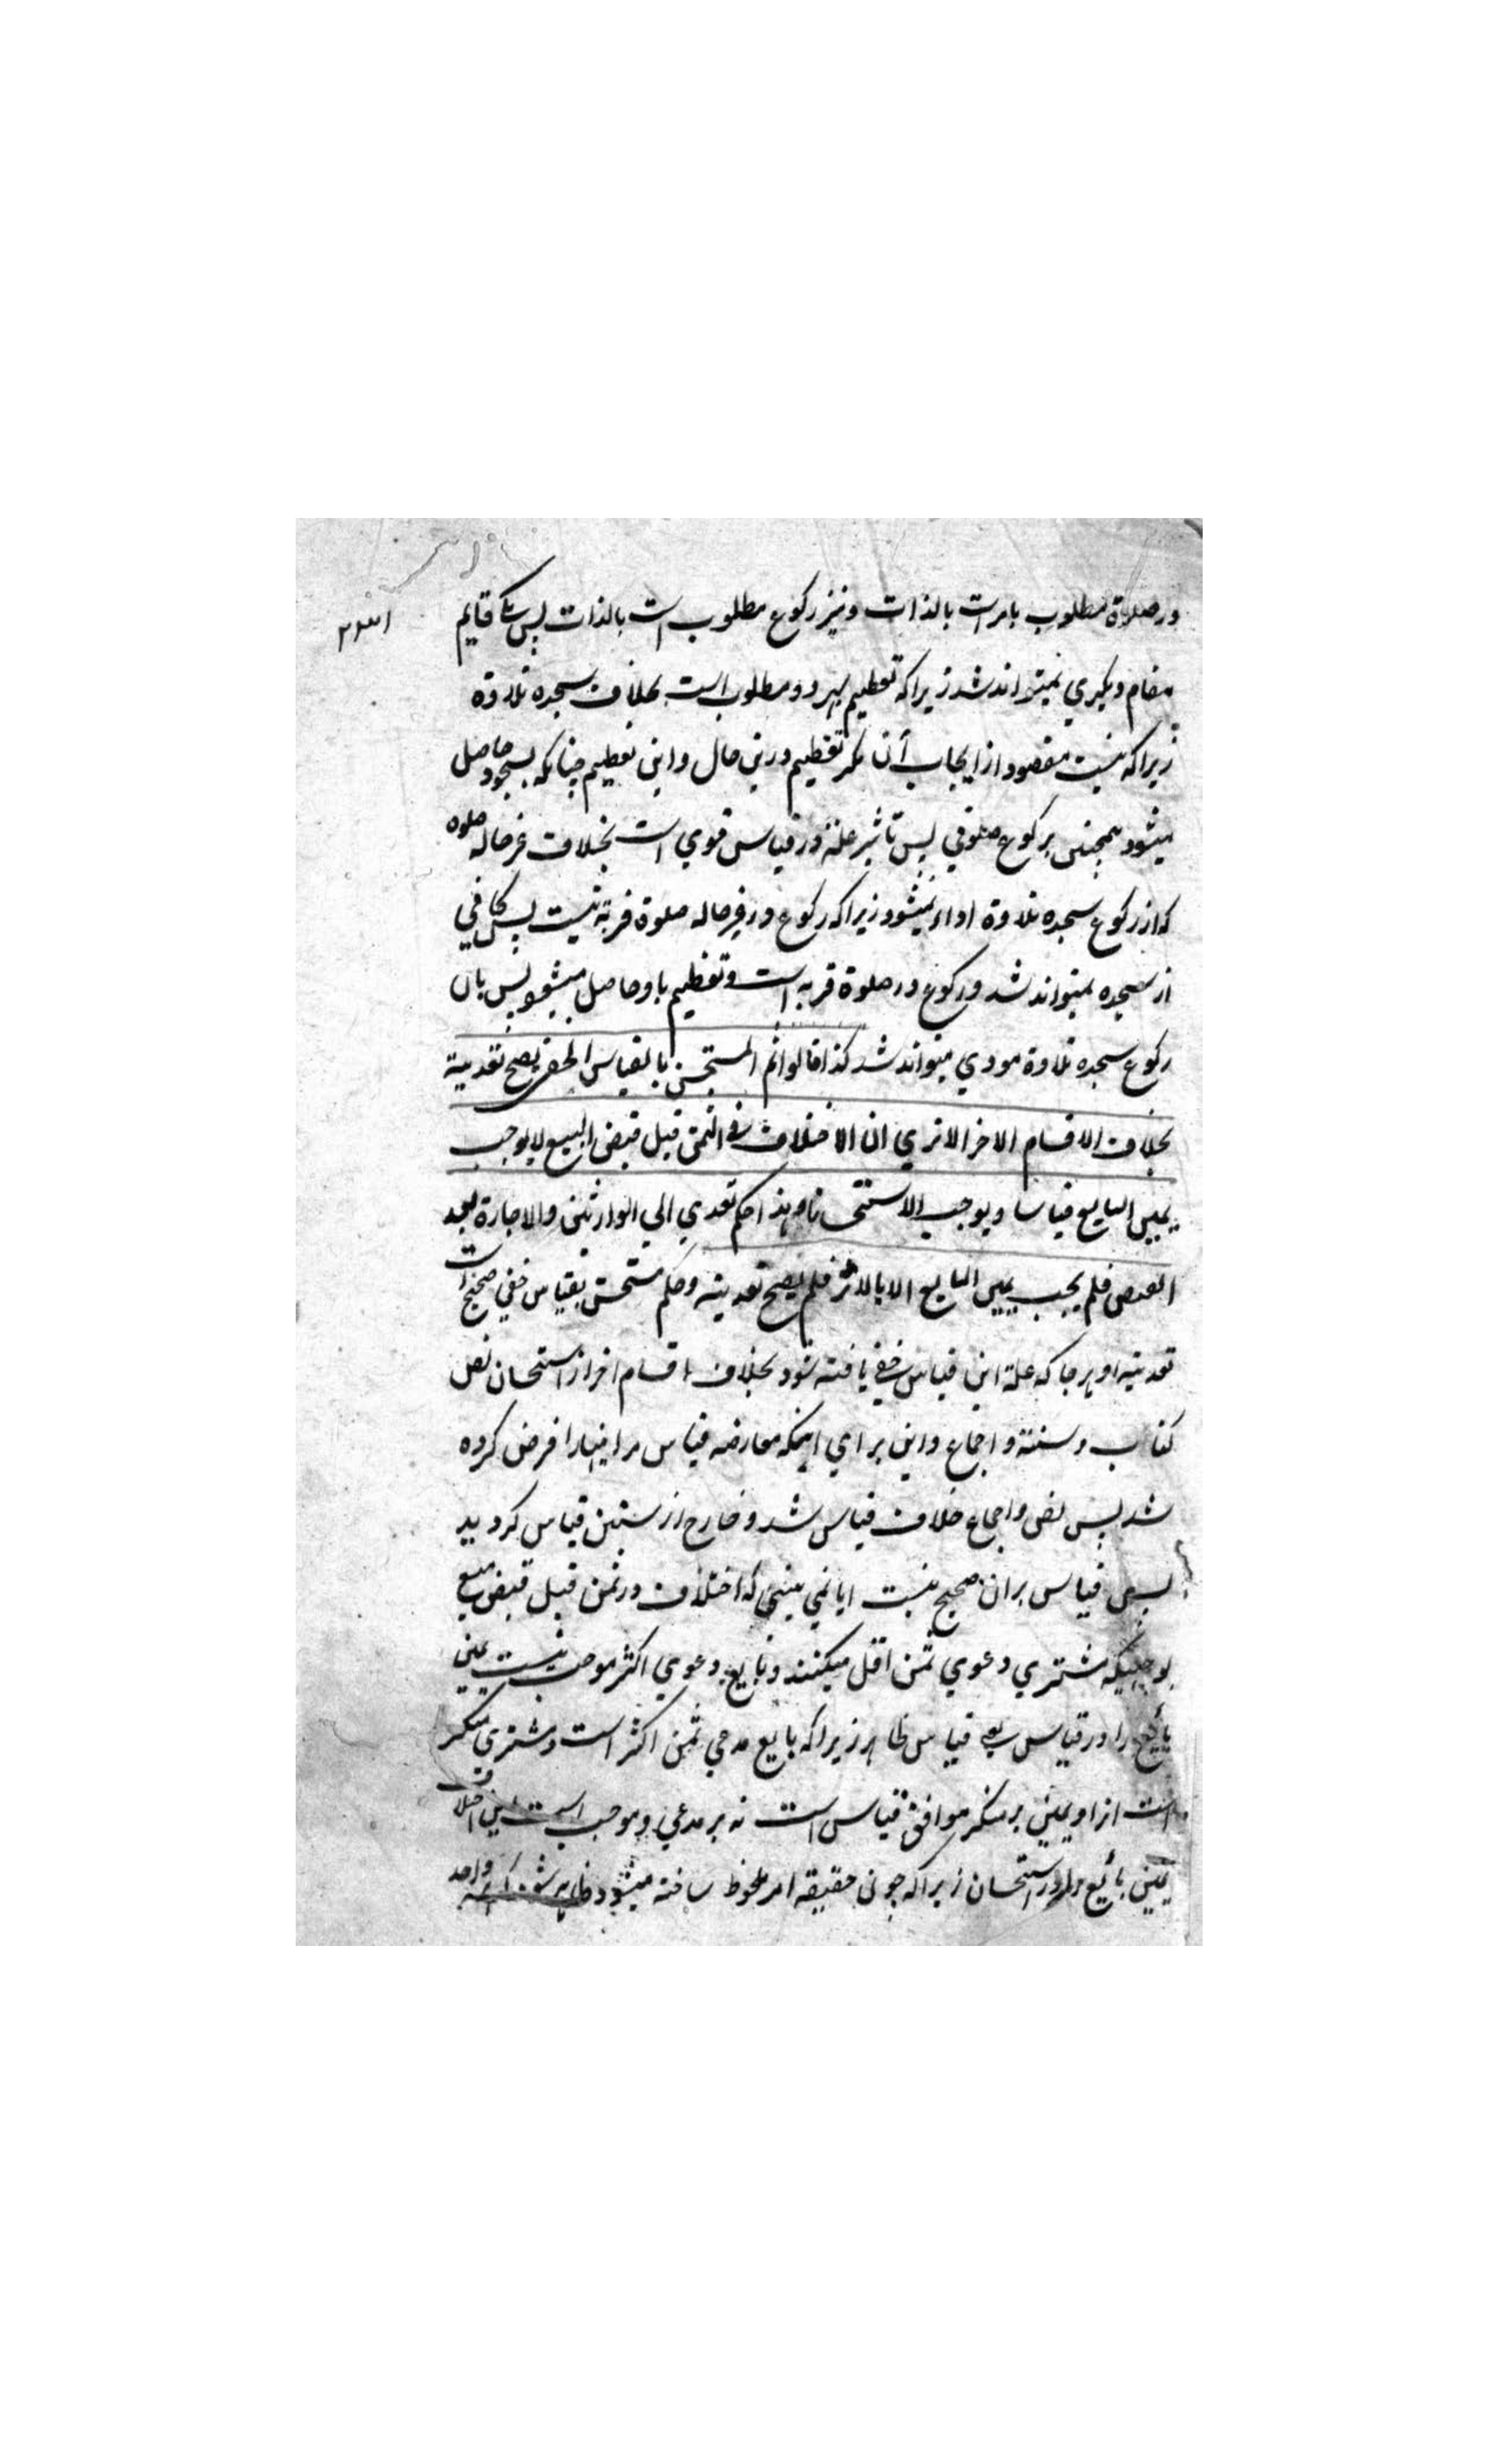 در صلوة مطلوب بامر است بالذات و نیز رکوع مطلوب است بالذات پس یکی قایم
مقام دیگری نمیتواند شد زیراکه تعظیم بهر دو مطلوب است بخلاف سجده تلاوة
زیراکه نیست مقصود از ایجاب آن مگر تعظیم درین حال و این تعظیم چنانکه بسجود حاصل
میشود همچنین برکوع صلوتی پس تاثیر علة در قیاس قوی است بخلاف غیر حاله صلوه
که از رکوع سجده تلاوة اداء نمیشود زیراکه رکوع در غیر حاله صلوة قربة نیست پس کافی
از سجده نمیتواند شد و رکوع در صلوة قربه است و تعظیم باو حاصل میشود پس بان
رکوع سجده تلاوة مودي میتواند شد کذا قالوا ثم المستحسن بالقیاس الخفی یصح تعدیته
بخلاف الاقسام الاخر الا تري ان الاختلاف في الثمن قبل قبض المبیع لا یوجب
یمین البایع قیاسا و یوجب الاستحسانا و هذا حکم تعدي الي الوارثین والاجارة بعد
القبض فلم یجب یمین البایع الا بالاثر فلم یصح تعدیته و حکم مستحسن بقیاس خفي صحیح است
تعدیته او هرجا که علة این قیاس خفي یافته شود بخلاف اقسام اخر از استحسان نص
کتاب و سنة و اجماع و این برای اینکه معارضه قیاس مر اینها را فرض کرده
شد پس نص و اجماع خلاف قیاس شد و خارج از سنن قیاس گردید
پس قیاس بران صحیح نیست ایا نمي بیني که اختلاف در ثمن قبل قبض مبیع
بوجهیکه مشتري دعوي ثمن اقل میکنند و بایع دعوي اکثر موجب نیست یمین
بایع را در قیاس یعنی قیاس ظاهر زیراکه بایع مدعي ثمن اکثر است و مشتري منکر
است ازو و یمین بر منکر موافق قیاس است نه بر مدعي و موجب است این اختلاف
یمین بایع را در استحسان زیراکه چون حقیقه امر ملحوظ ساخته میشود ظاهر شود که هر واحد